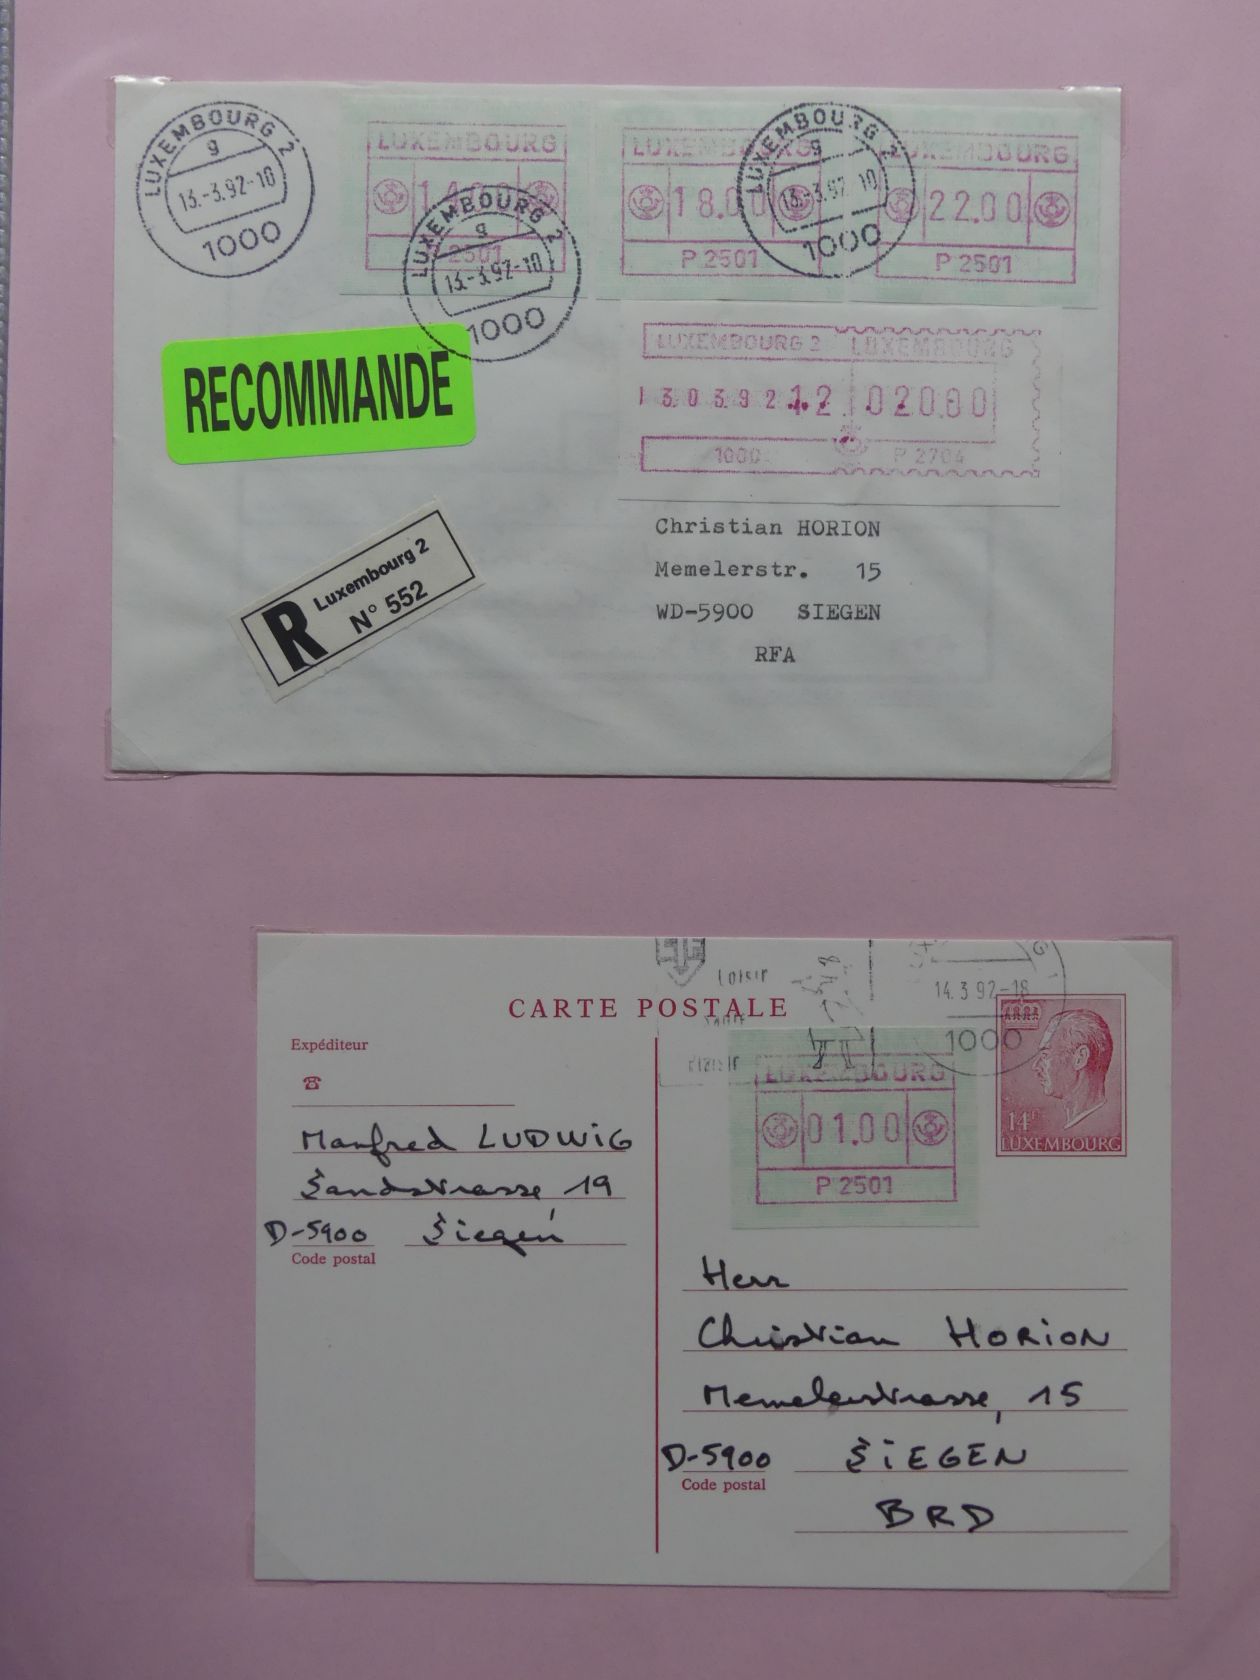 LUXEMBOURG 2
g
13.-3.92-10
1000
LUXEMBOURG
14.00
2501
LUXEMBOURG 2
g
13.-3.92-10
1000
LUXEMBOURG
18.00
P 2501
LUXEMBOURG 2
g
13.-3.92-10
1000
LUXEMBOURG
22.00
P 2501
RECOMMANDE
LUXEMBOURG 2 LUXEMBOURG
13.03.92 12 020.00
1000 P 2704
R Luxembourg 2
N° 552
Christian HORION
Memelerstr. 15
WD-5900 SIEGEN
RFA
Loisir
14.3.92-18
1000
CARTE POSTALE
14F
LUXEMBOURG
LUXEMBOURG
01.00
P 2501
Expéditeur
Manfred LUDWIG
Sandstrasse, 19
D-5900 Siegen
Code postal
Herr
Christian HORION
Memelerstrasse, 15
D-5900 SIEGEN
Code postal
BRD